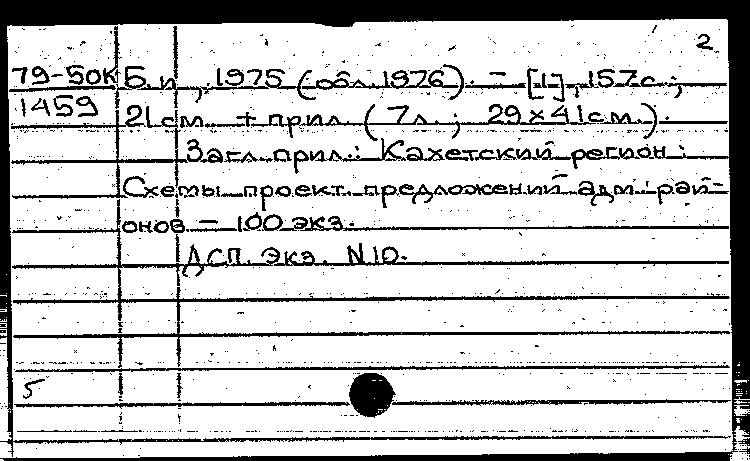 2
79-50К Б. и., 1975 (обл. 1976). - [1], 157 с.;
1459 21 см. + прил. (7 л.; 29×41 см.).
Загл. прил.: Кахетский регион:
Схемы проект. предложений адм. рай-
онов - 100 экз.
ДСП. Экз. N 10.
5